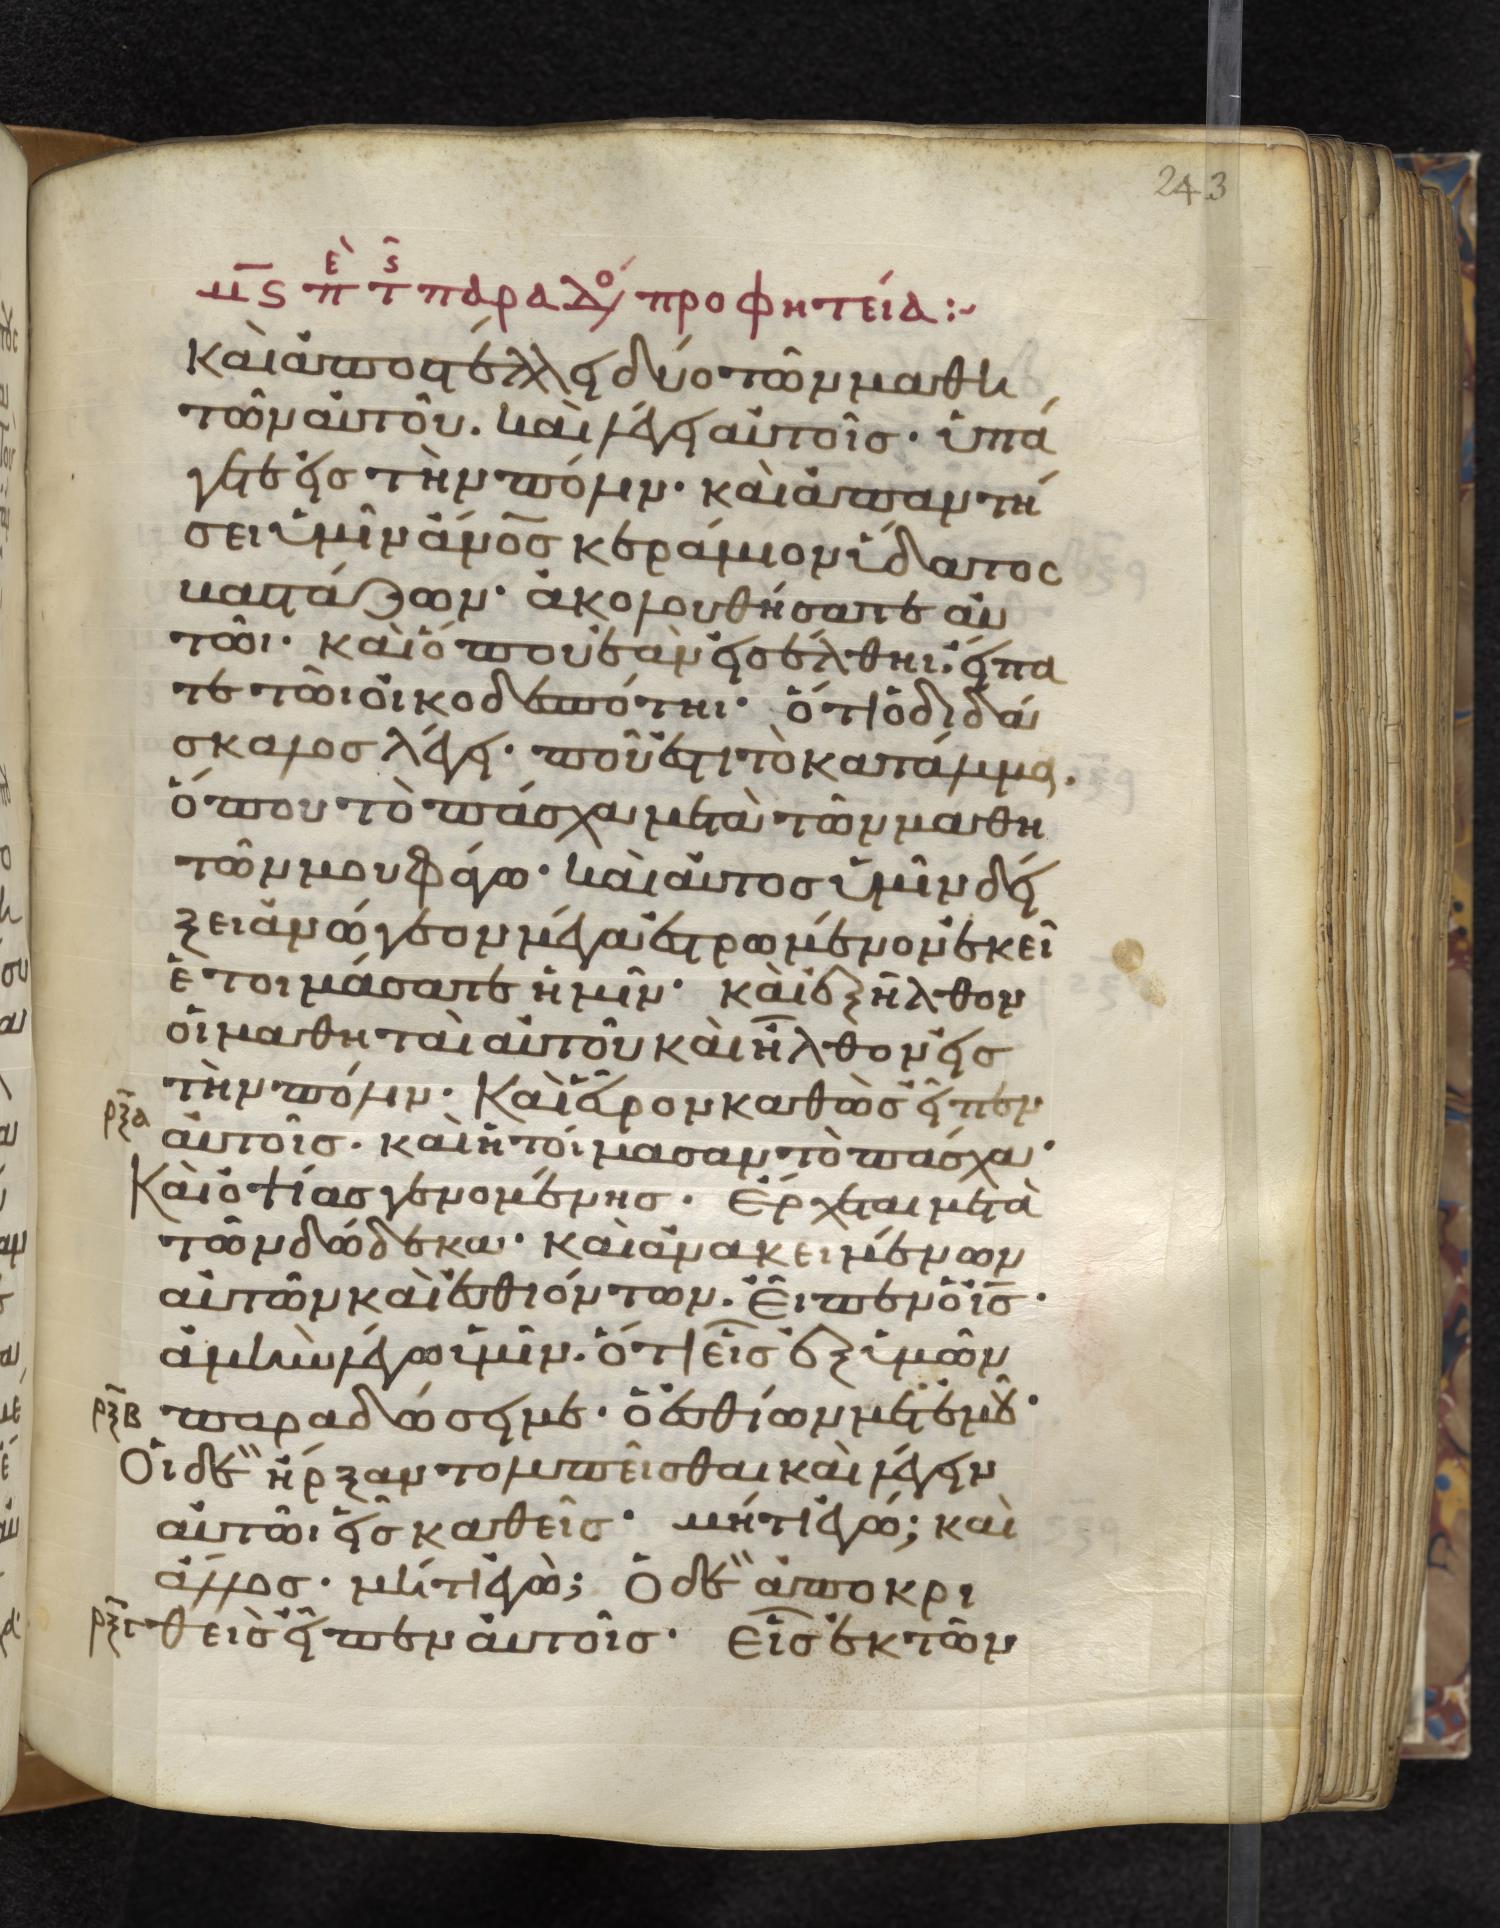 243
μς πὲ τς παραδό προφητεία:~
Καὶ ἀποστέλλει δύο τῶν μαθη
τῶν αὐτοῦ. καὶ λέγει αὐτοῖσ· ὑπά
γετε εἰς τὴν πόλιν· καὶ ἀπαντή
σει ὑμῖν ἀν̅ο̅σ̅ κεράμιον ὕδατος
βαστάζων· ἀκολουθήσατε αὐ
τῶι· καὶ ὅπου ἐὰν εἰσέλθηι· εἴπα
τε τῶι οἰκοδεσπότηι· ὅτι ὁ διδά
σκαλοσ λέγει· ποῦ ἐστι τὸ κατάλυμα.
ὅπου τὸ πάσχα μετὰ τῶν μαθη
τῶν μου φάγω· καὶ αὐτοσ ὑμῖν δεί
ξει ἀνώγεον μέγα ἐστρωμένον ἐκεῖ
ἑτοιμάσατε ἡμῖν· καὶ ἐξῆλθον
οἱ μαθηταὶ αὐτοῦ καὶ ἦλθον εἰσ
τὴν πόλιν· Καὶ εὗρον καθὼσ εἶπεν
ρξα αὐτοῖσ. καὶ ἡτοίμασαν τὸ πάσχα·
Καὶ ὀψίασ γενομένησ. ἔρχεται μετὰ
τῶν δώδεκα· καὶ ἀνακειμένων
αὐτῶν καὶ ἐσθιόντων. εἶπεν ὁ ι̅σ̅·
ἀμὴν λέγω ὑμῖν. ὅτι εἷσ ἐξ ὑμῶν
ρξβ παραδώσει με· ὁ ἐσθίων μετ' ἐμοῦ·
Οἱ δὲ ἤρξαντο λυπεῖσθαι καὶ λέγειν
αὐτῶι εἷσ καθεῖσ· μήτι ἐγώ; καὶ
ἄλλοσ. μήτι ἐγὼ; Ὁ δὲ ἀποκρι
ρξγ θεὶσ εἶπεν αὐτοῖσ· εἷσ ἐκ τῶν